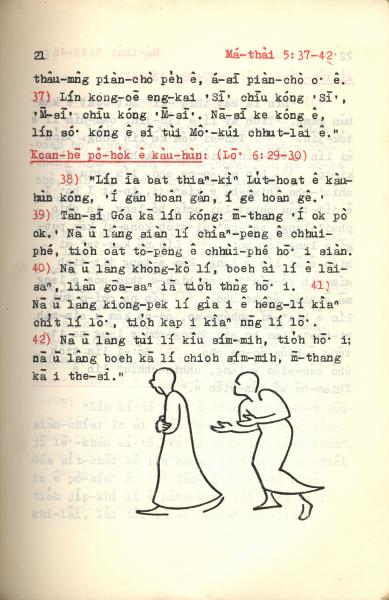 21 Má-thài 5:37-42
thâu-mn̂g piàn-chò pe̍h ê, á-sī piàn-chò o͘ ê.
37) Lín kong-oē eng-kai 'Sī' chīu kóng 'Sī',
'M̄-sī' chīu kóng 'M̄-sī'. Nā-sī ke kóng ê,
lín só͘ kóng ê sī tùi Mô͘-kúi chhut-lâi ê."
Koan-hē pò-ho̍k ê kàu-hùn: (Lō͘ 6:29-30)
38) "Lín īa bat thiaⁿ-kìⁿ Lu̍t-hoat ê kàu-
hùn kóng, 'Í gán hoân gán, í gê hoân gê.'
39) Tān-sī Góa kā lín kóng: m̄-thang 'Í ok pò
ok.' Nā ū lâng siàn lí chìaⁿ-pêng ê chhùi-
phé, tio̍h oa̍t tò-pèng ê chhùi-phé hō͘ i siàn.
40) Nā ū lâng khòng-kò lí, boeh ài lí ê lāi-
saⁿ, lián gōa-saⁿ iā tio̍h thǹg hō͘ i. 41)
Nā ū lâng kiông-pek lí gîa i ê hêng-lí kîaⁿ
chi̍t lí lō͘, tio̍h kap i kîaⁿ nn̄g lí lō͘.
42) Nā ū lâng tùi lí kîu sím-mih, tio̍h hō͘ i;
nā ū lâng boeh kā lí chioh sím-mih, m̄-thang
kā i the-sî."